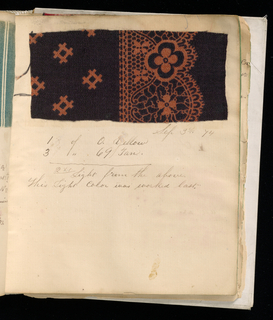 Sep. 3
1 of A. Yellow
3 " 69 Tan.
Light from the above
This light color was worked last